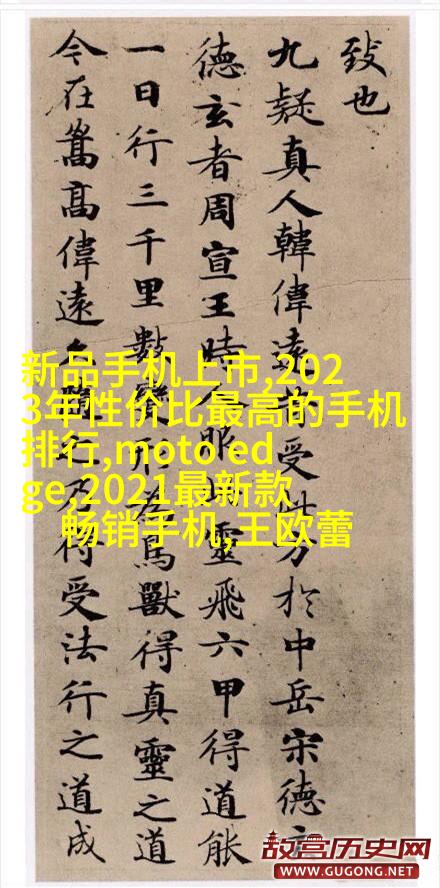 致也
九疑真人韓偉遠昔受此方於中岳宋德玄
德玄者周宣王時人服此靈飛六甲得道能
一日行三千里數變形為鳥獸得真靈之道
今在嵩高偉遠久隨之乃得受法行之道成
新品手机上市,202
3年性价比最高的手机
排行,moto ed
ge,2021最新款
畅销手机,王欧蕾
故宫历史网
www.GUGONG.NET